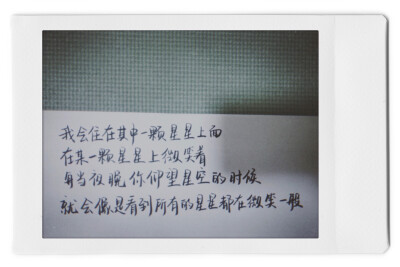 我会住在其中一颗星星上面
在某一颗星星上微笑着
每当夜晚,你仰望星空的时候
就会像是看到所有的星星都在微笑一般